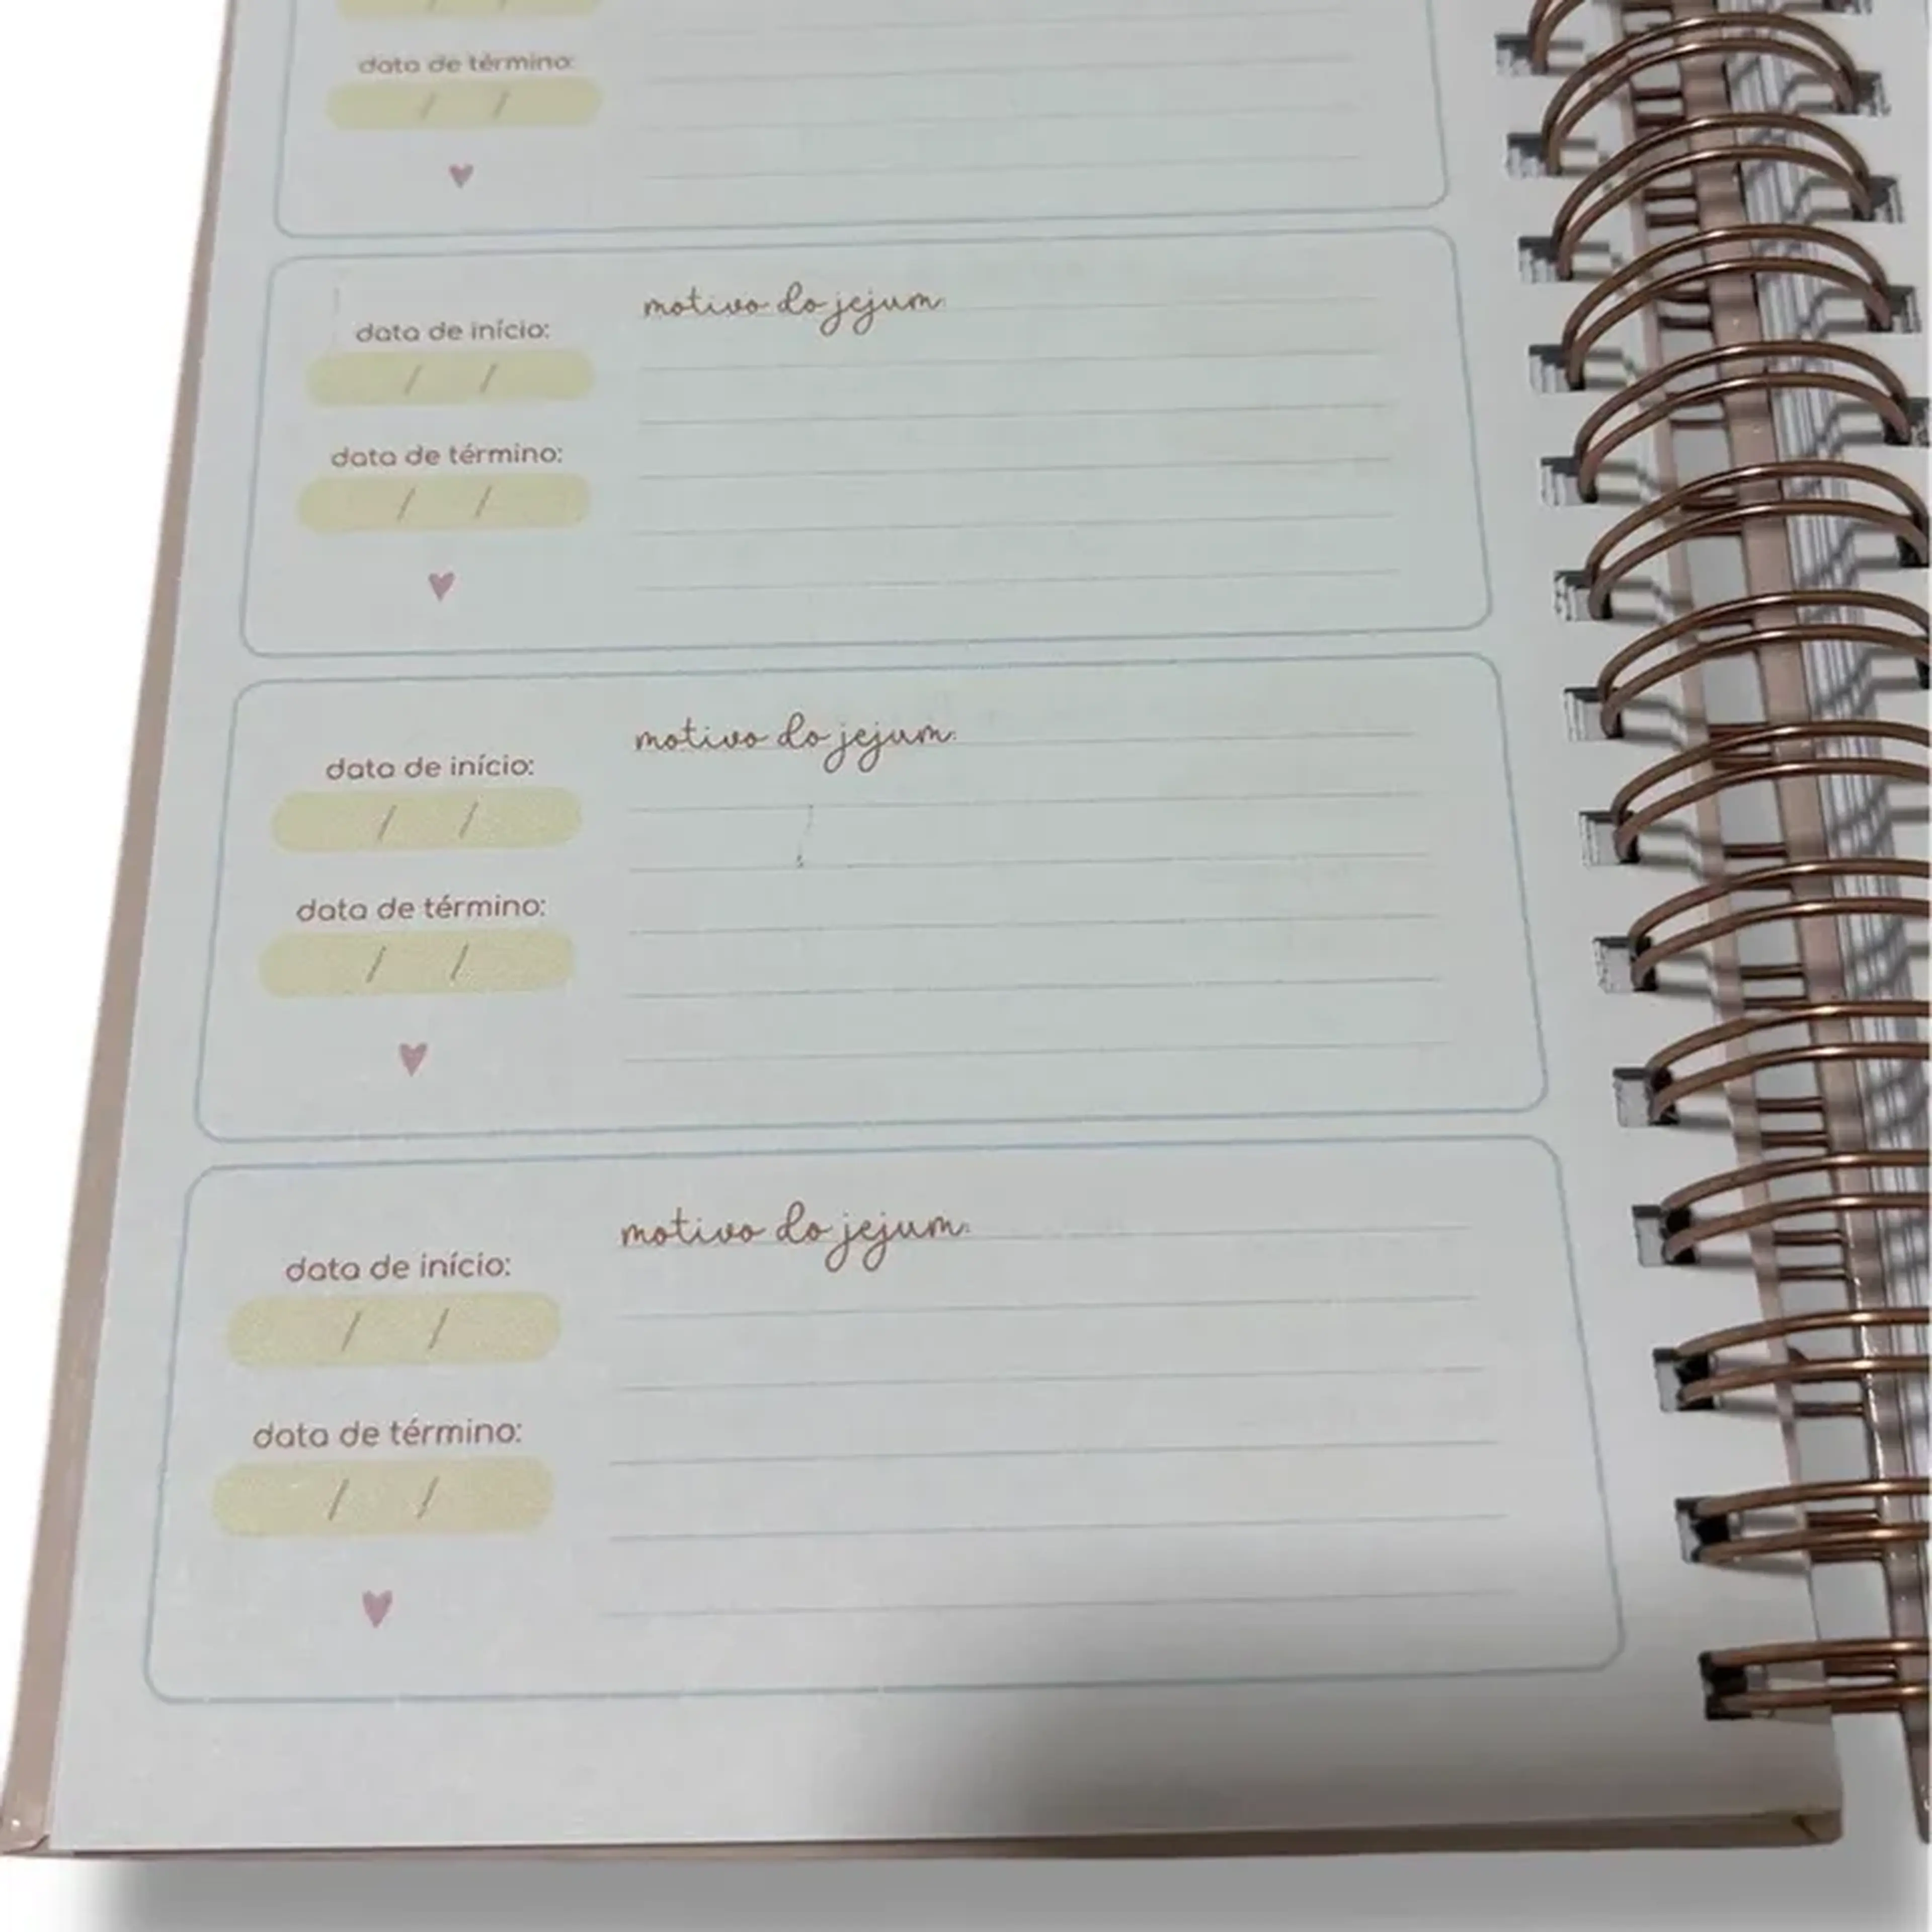 / /
data de término:
/ /
motivo do jejum:
data de início:
/ /
data de término:
/ /
motivo do jejum:
data de início:
/ /
data de término:
/ /
motivo do jejum:
data de início:
/ /
data de término:
/ /